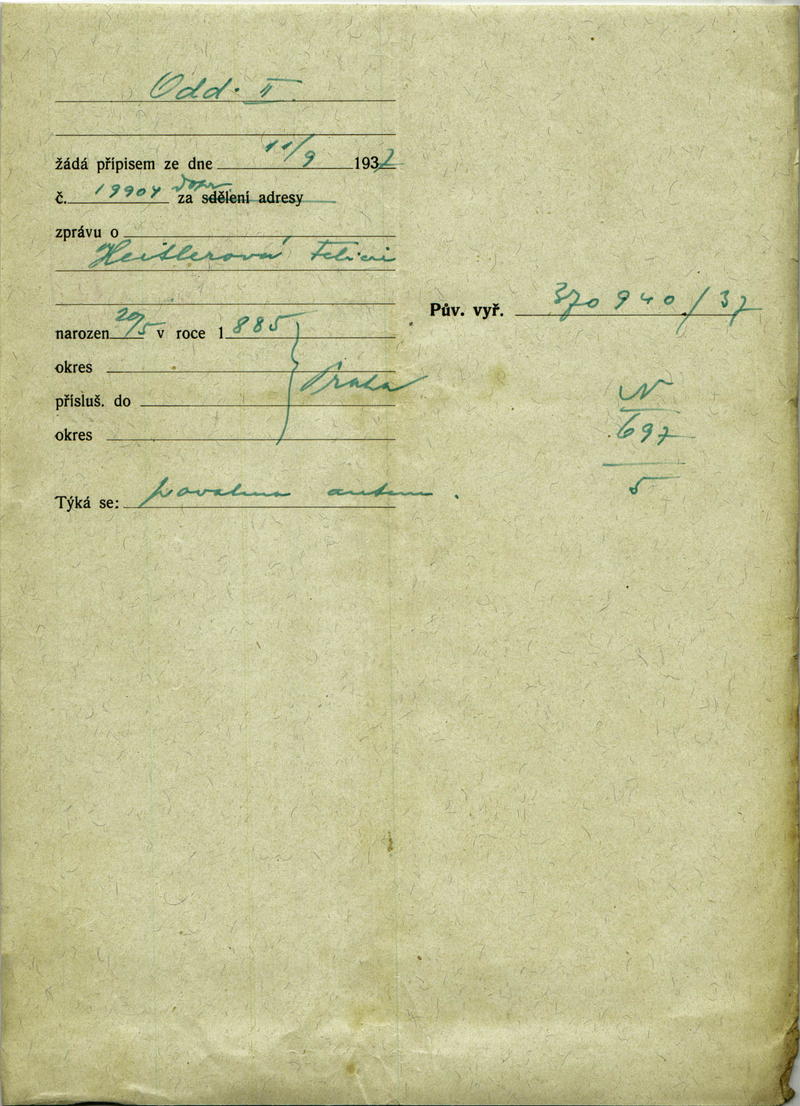 Odd. II.
žádá přípisem ze dne 11/9 1937
č. 19904 za sdělení adresy
zprávu o
Heitlerová Felici
Pův. vyř. 370 940/37
narozen 20/5 v roce 1885
okres
Praha
přísluš. do
okres
N
697
5
Týká se: povalena autem.